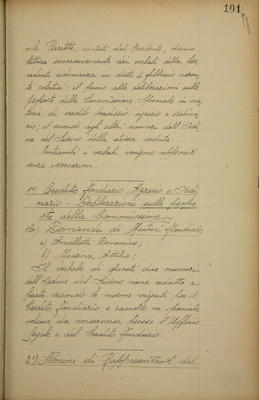 101
e Beretta, invitati dal Presidente, danno
lettura successivamente dei verbali della pre-
cedente adunanza in data 4 febbraio corren-
te relativi: il primo alle deliberazioni sulle
proposte della Commissione Speciale in ma-
teria di credito fondiario agrario e ordina-
rio; il secondo agli altri numeri dell'Ordi-
ne del Giorno della stessa seduta.
Entrambi i verbali vengono approvati
senza osservazioni.
1º) Credito Fondiario Agrario e Ordi-
nario - Deliberazioni sulle propo-
ste della Commissione
1b) Domande di Mutui Fondiari
a) Domenico;
b) Attilio;
Il verbale di questi due numeri
dell'Ordine del Giorno viene redatto a
parte secondo le norme vigenti per il
Credito Fondiario, e raccolto in speciale
volume da conservarsi presso l'Ufficio
Legale e del Credito Fondiario.
2º) Nomine di Rappresentanti del